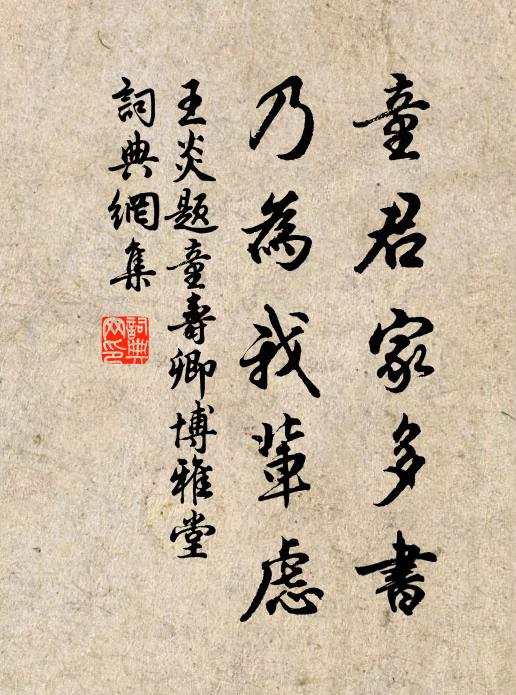 童君家多書
乃為我輩慮
王炎題童壽卿博雅堂
詞典網集
詞典網印